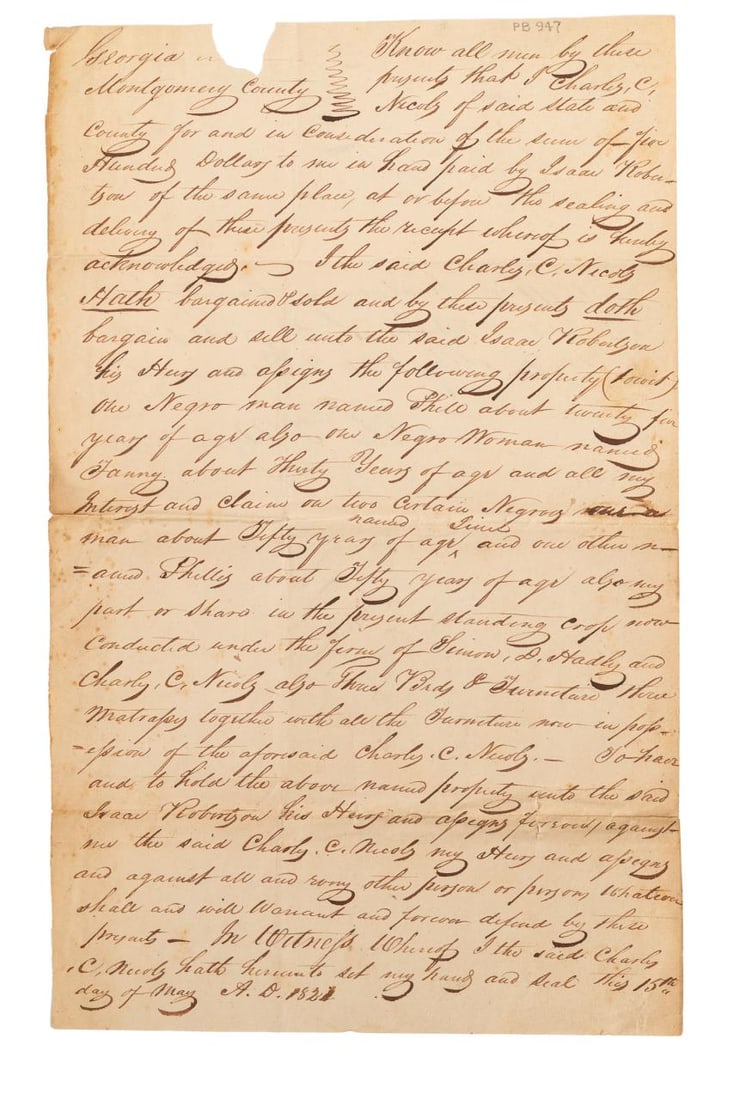 PB 947
Georgia Know all men by these
Montgomery County presents that I Charles, C,
Nicols of said state and
County for and in Consideration of the sum of five
Hundred Dollars to me in hand paid by Isaac Rober-
tson of the same place, at or before the sealing and
delivery of these presents the receipt whereof is hereby
acknowledged. — I the said Charles, C. Nicols
Hath bargained & sold and by these presents doth
bargain and sell unto the said Isaac Robertson
his Heirs and assigns the following property (towit)
One Negro man named Phill about twenty five
years of age also one Negro Woman named
Fanny about Thirty Years of age and all my
Interest and claim on two Certain Negroes
named
man about Fifty years of age ^ and one other n-
=amed Phillis about Fifty years of age also my
part or share in the present standing crop now
Conducted under the firm of Simon, D. Hadley and
Charles, C, Nicols also Three Beds & Furniture three
Matrasses together with all the Furniture now in poss-
=ession of the aforesaid Charles. C. Nicols. — To have
and to hold the above named property unto the said
Isaac Robertson his Heirs and assigns forever, against
me the said Charles. C. Nicols my Heirs and assigns
and against all and every other person or persons Whatever
shall and will Warrant and forever defend by these
presents — In Witness Whereof I the said Charles
C, Nicols hath hereunto set my hand and seal this 15th
day of May A. D. 1821